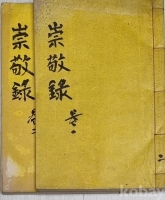 崇敬錄
卷一
崇敬錄
卷二
二
Kobay